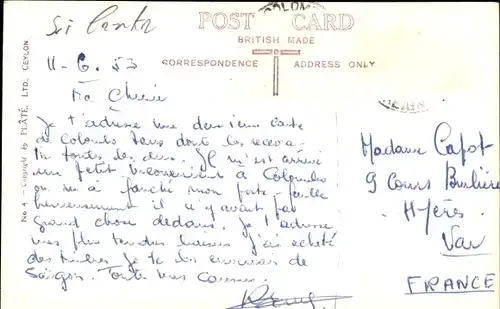 Sri Lanka
POST CARD
BRITISH MADE
CORRESPONDENCE ADDRESS ONLY
No 4 — Copyright by PLÂTÉ, LTD, CEYLON
11-6.53
Ma Chérie
Je t'adresse une deuxième carte
de Colombo
tu toutes les deux. Il m'est arrivé
un petit inconvénient à Colombo
on m'a fauché mon porte-feuille
heureusement il n'y avait pas
grand chose dedans. Je t'adresse
mes plus tendres baisers j'ai acheté
des timbres je te les enverrais de
Saïgon. Toute mes caresses.
Rémy
Madame Capot
9 Cours
Hyères
Var
FRANCE